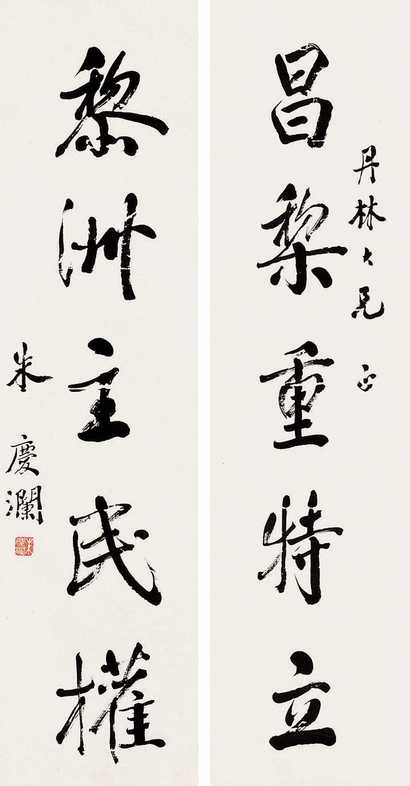 昌黎重特立
丹林大兄 正
黎洲主民權
朱慶瀾